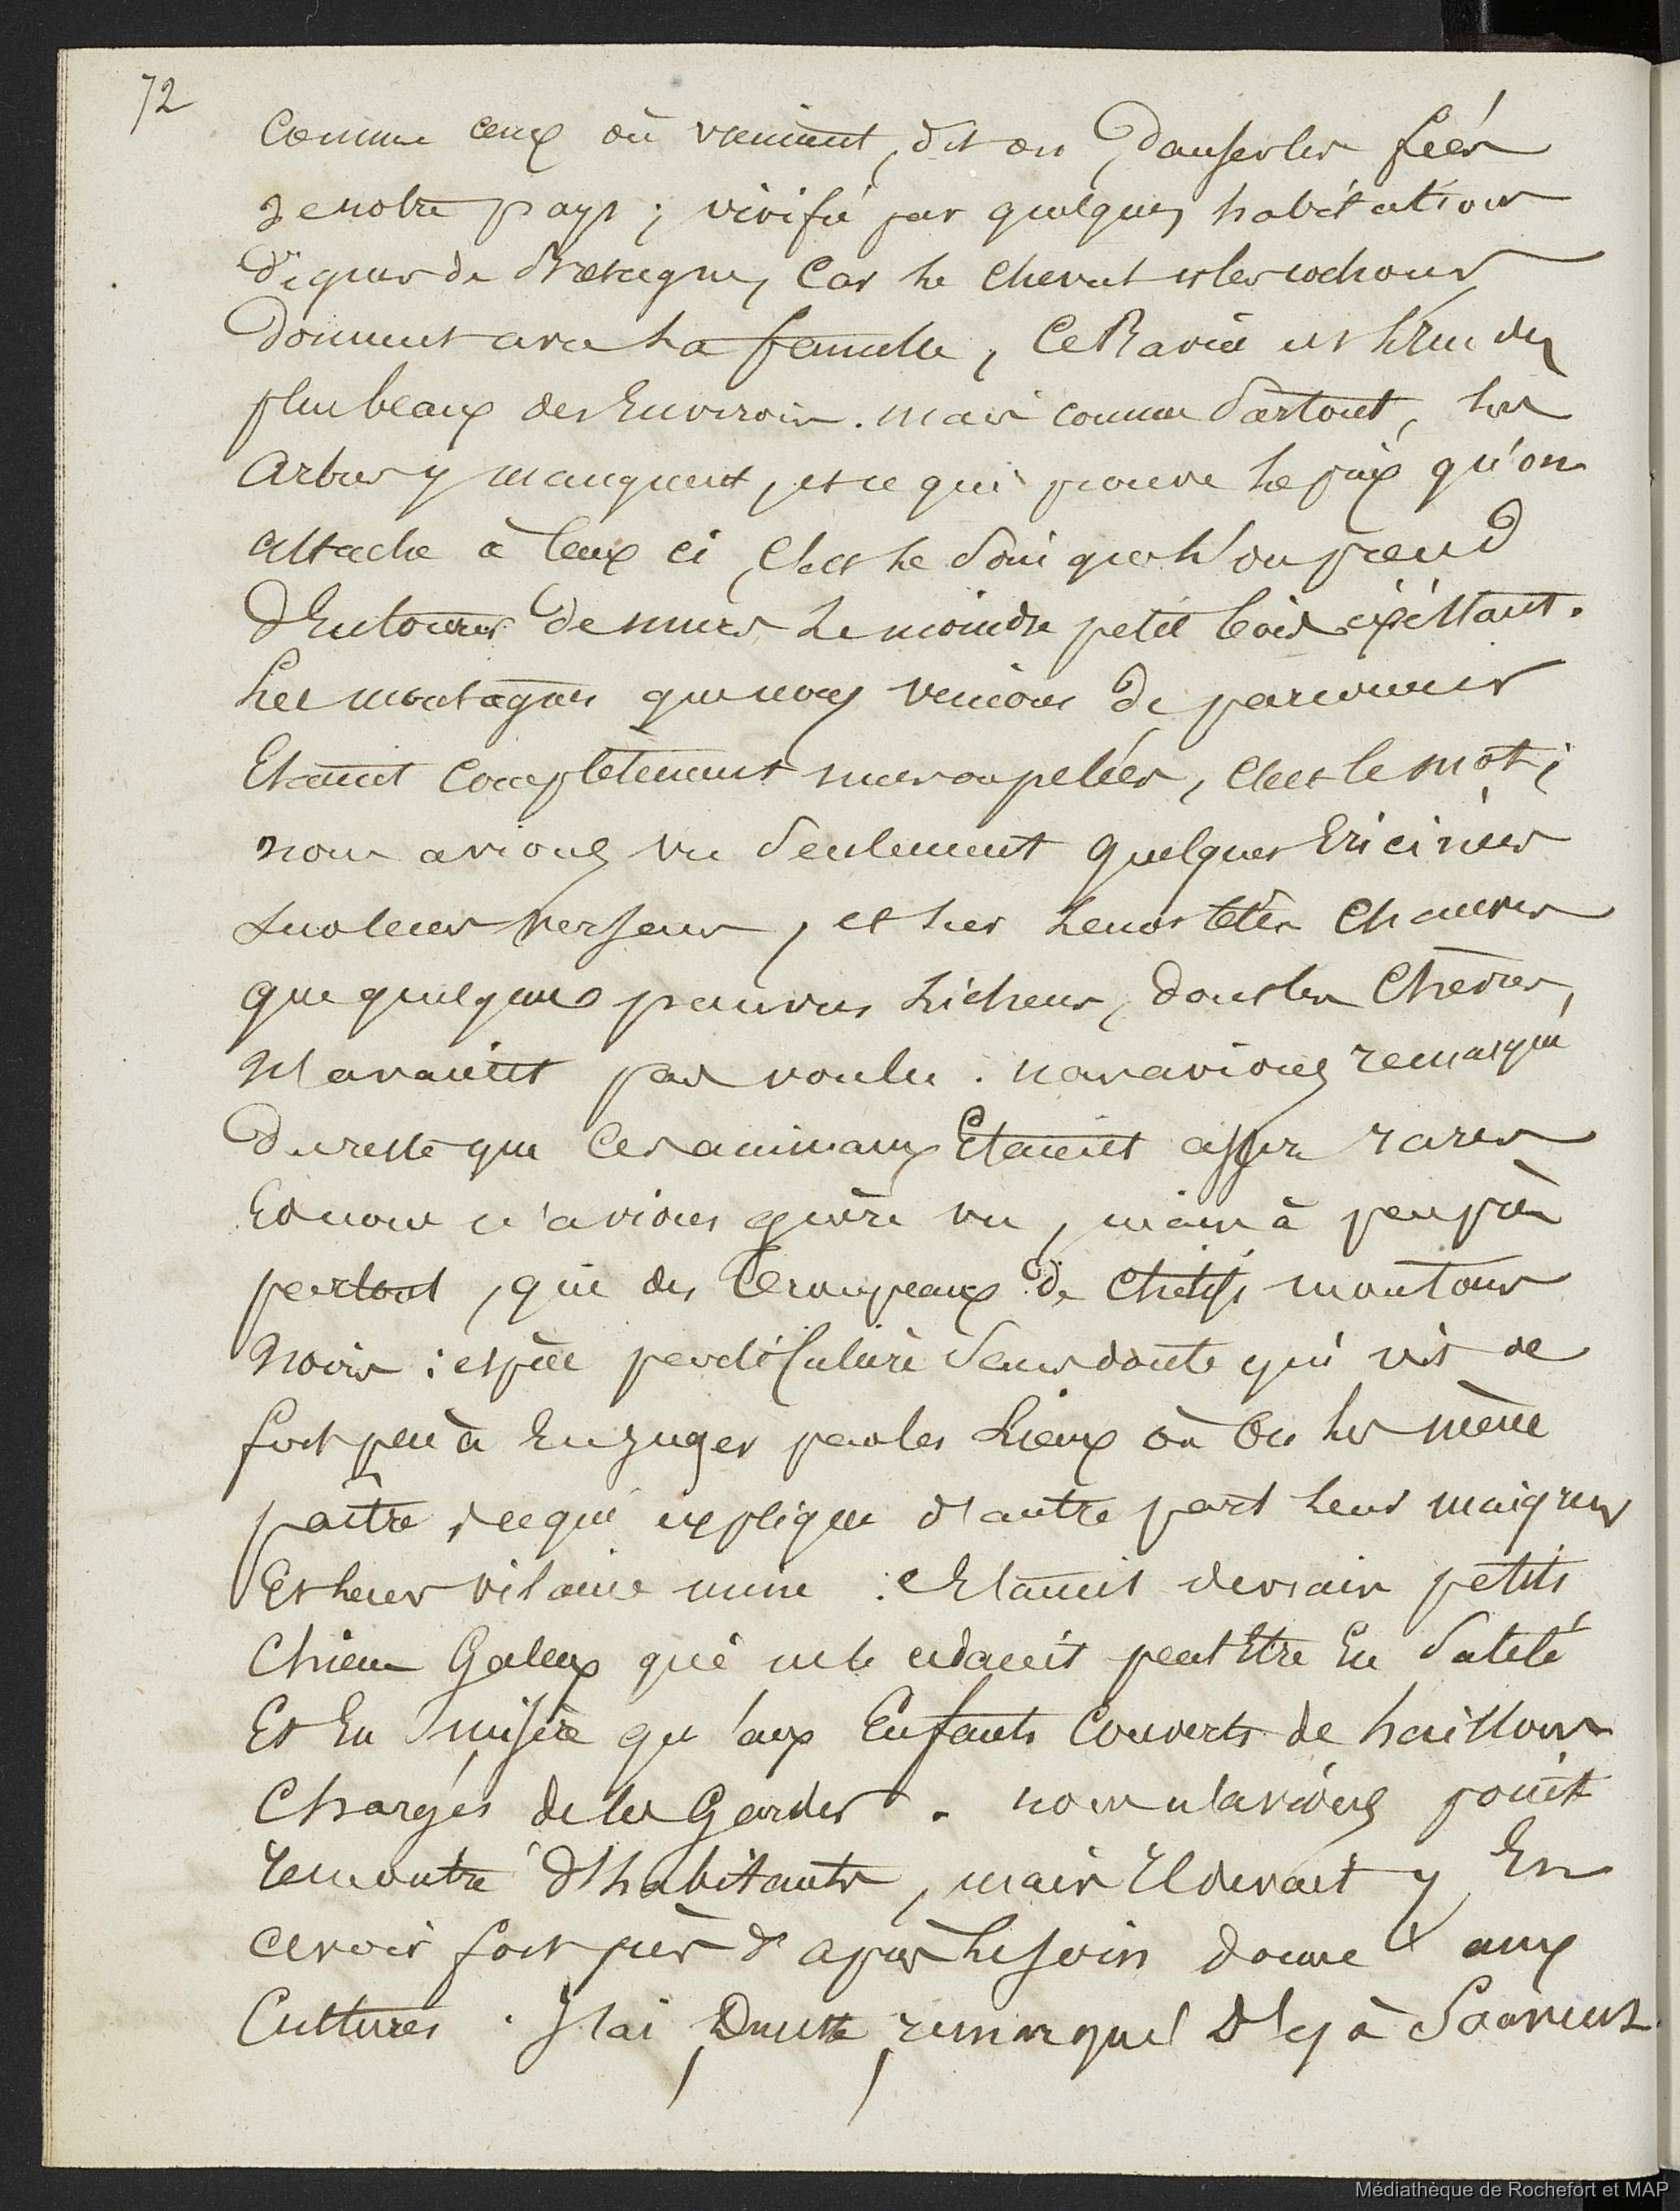 72
comme ceux où viennent, dit on, danser les fées
de notre pays ; vivifié par quelques habitations
dignes de Bretagne, car le cheval et les cochons
dorment avec la famille, ce Ravin est l'un des
plus beaux des Environs. mais comme Partout, les
Arbres y manquent, et ce qui prouve le prix qu'on
attache à ceux ci, c'est le soin que l'on prend
d'Entourer de murs le moindre petit bois éxistant.
Les montagnes que nous venions de parcourir
Etaient complètement nues ou pelées, c'est le mot ;
nous avions vu seulement quelques Ericinées
sur leurs versants, et sur leurs têtes chauves
que quelques pauvres Lichens, dont les chèvres,
n'avaient pas voulu. nous avions remarqué
du reste que ces animaux Etaient assez rares
Et nous n'avions guère vu, mais à peu près
partout, que des Troupeaux de chétifs moutons
noirs : espèce particulière sans doute qui vit de
fort peu à En juger par les Lieux où On les mène
paître, ce qui explique d'autre part leur maigreur
Et leur vilaine mine : C'Etaient de vrais petits
chiens Galeux qui ne le cédaient peut Etre En saleté
Et En misère qu'aux Enfants couverts de haillons
chargés de les Garder. nous n'avions point
rencontré d'habitants, mais Il devait y En
avoir fort près d'après le soin donné aux
Cultures. J'ai Du reste remarqué Déjà souvent
Médiathèque de Rochefort et MAP